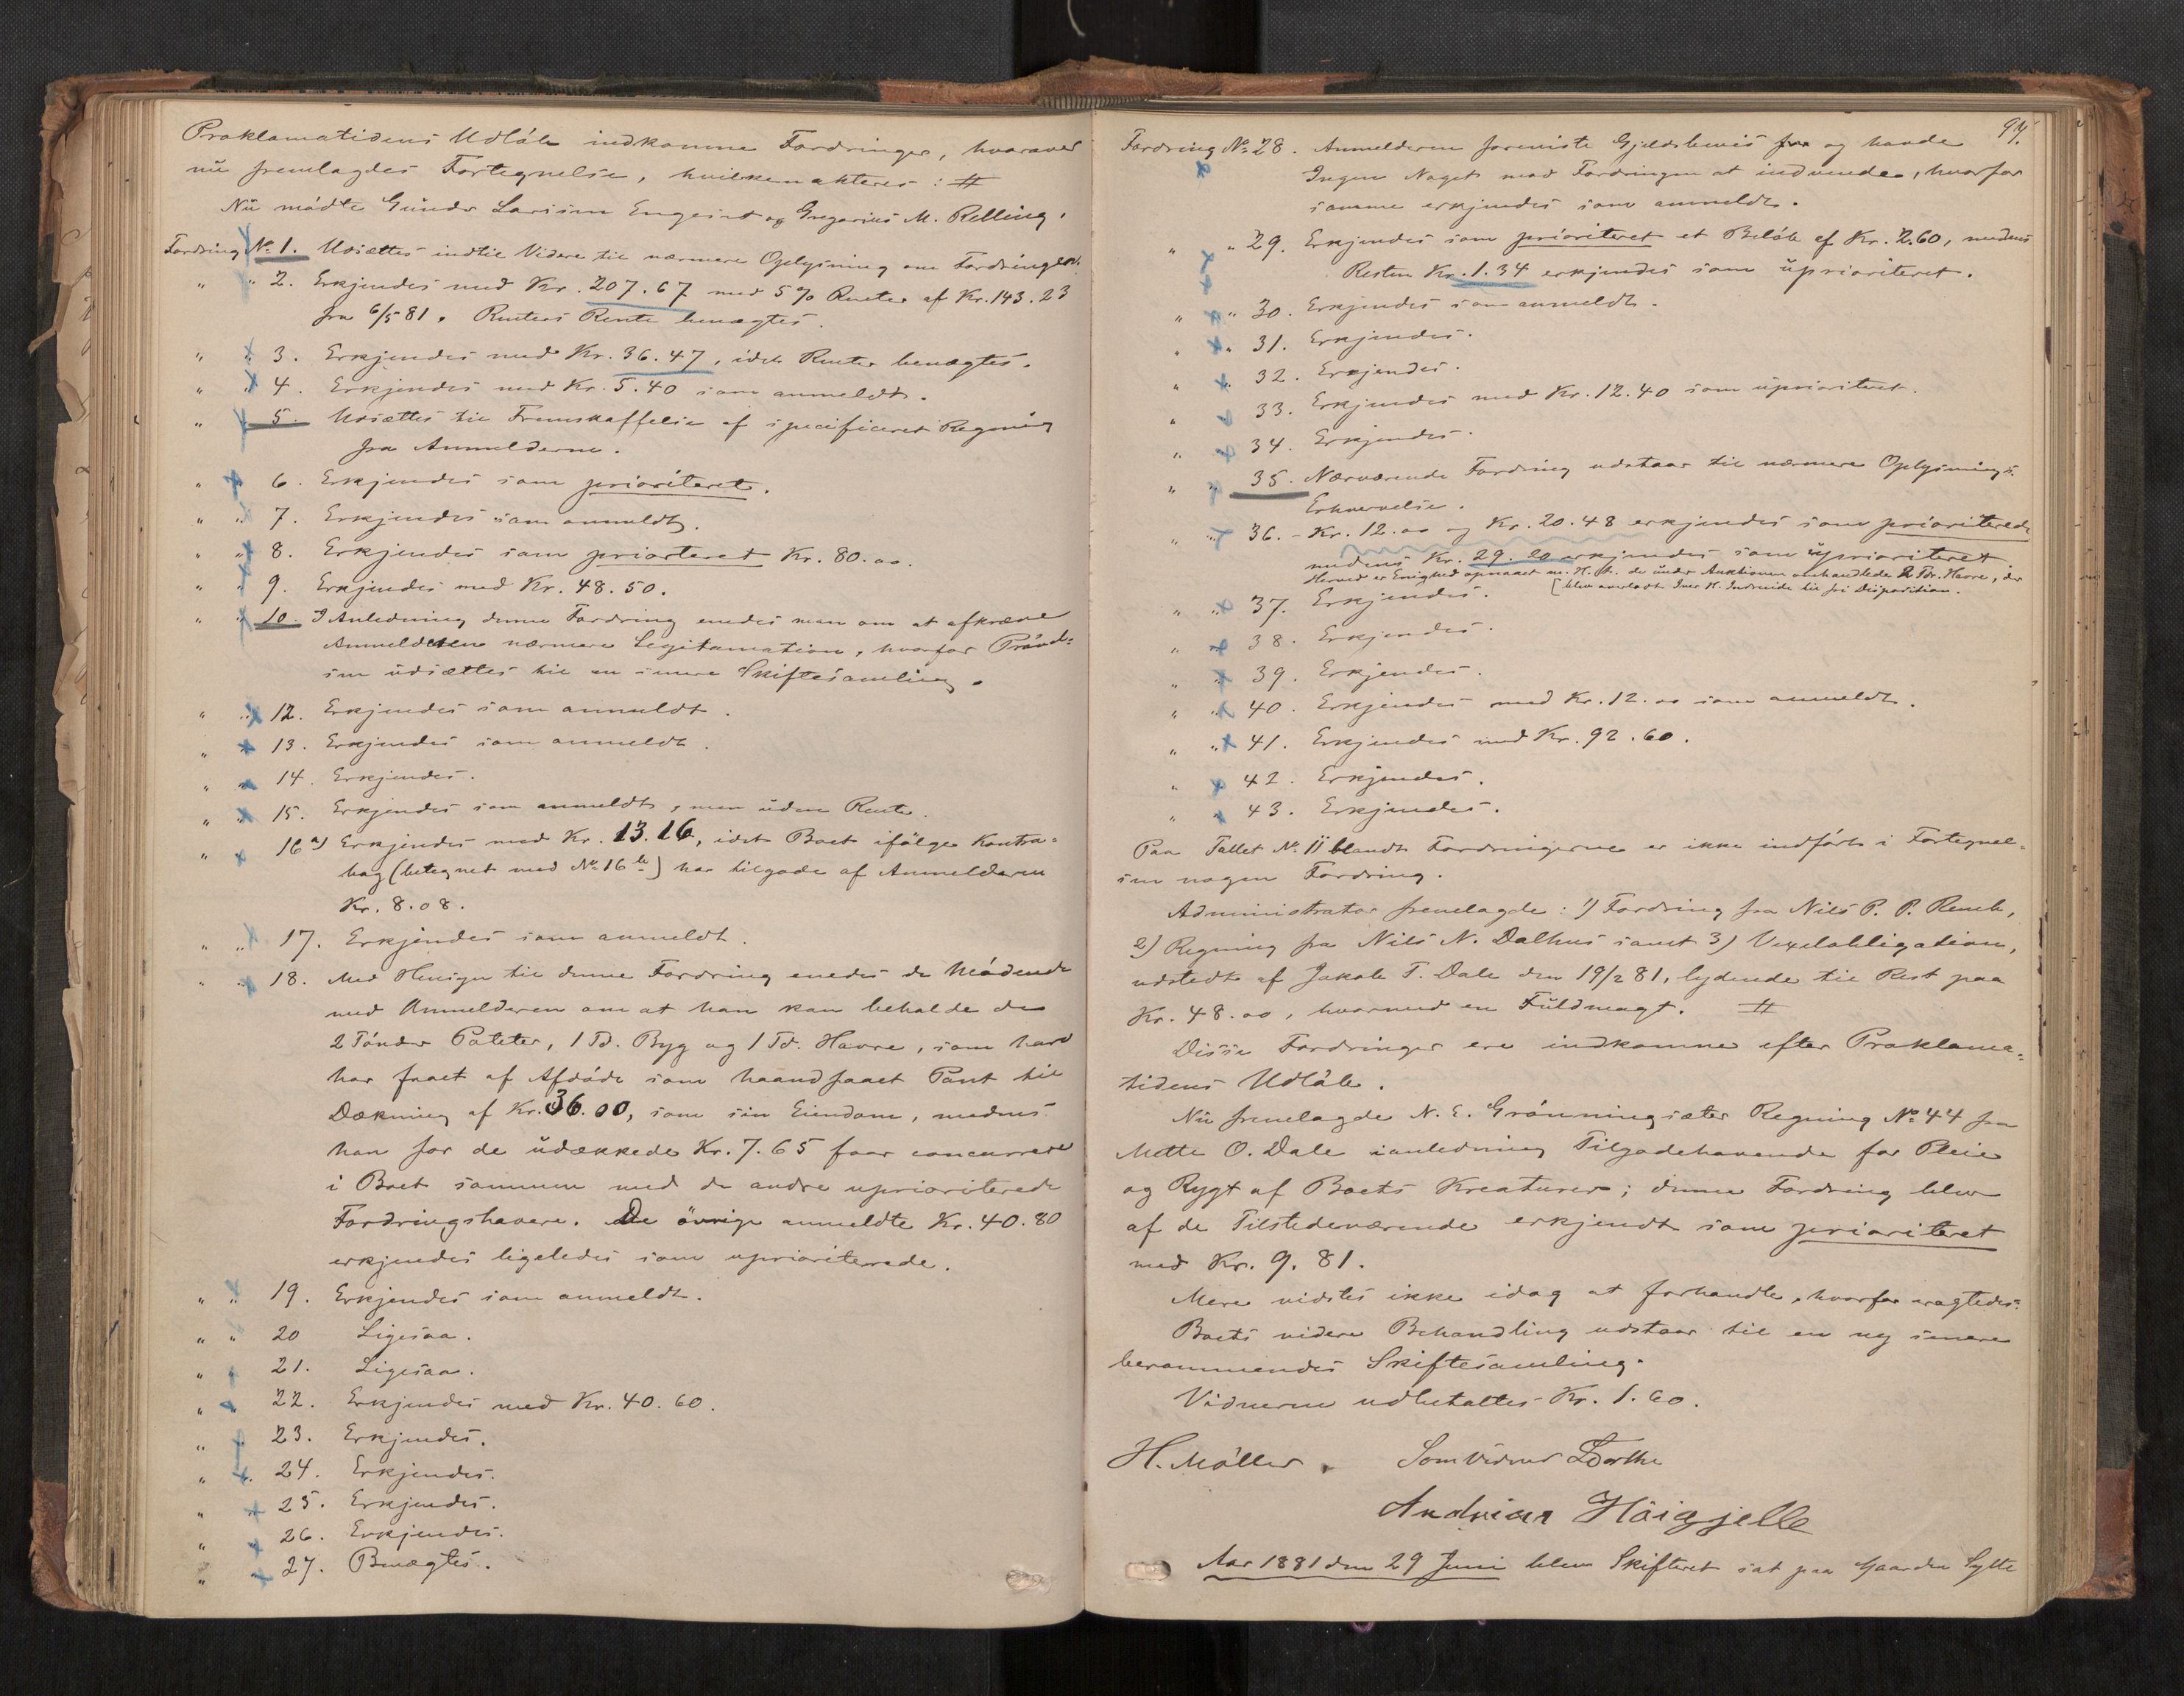 Proklamatidens Udløb indkomne Fordringer, hvoraver
nu fremlagdes Fortegnelse, hvilken akteres: #
Nu mødte Gunder Larssen Engeset og Gregorius M. Relling.
Fordring No 1. Udsættes indtil Videre til nærmere Oplysning om Fordringen.
" " 2. Erkjendes med Kr. 207.67 med 5 % Renter af Kr. 143.23
fra 6/5 81. Renters Rente benægtes.
" " 3. Erkjendes med Kr. 36.47, idet Renter benægtes.
" " 4. Erkjendes med Kr. 5.40 som anmeldt.
" 5. Udsættes til Fremskaffelse af specificeret Regning
fra Anmelderne.
" " 6. Erkjendes som prioriteret.
" " 7. Erkjendes som anmeldt.
" " 8. Erkjendes som priorteret Kr. 80.00.
" " 9. Erkjendes med Kr. 48.50.
" " 10. I Anledning denne Fordring enedes man om at afkræve
Anmelderen nærmere Legitamation, hvorfor Prøvel=
sen udsættes til en senere Skiftesamling.
" " 12. Erkjendes som anmeldt.
" 13. Erkjendes som anmeldt.
" 14. Erkjendes.
" " 15. Erkjendes som anmeldt, men uden Rente.
" 16 a) Erkjendes med Kr. 13.16, idet Boet ifølge Kontra=
bog (betegnet med No 16 b) har tilgode af Anmelderen
Kr. 8.08.
" " 17. Erkjendes som anmeldt.
" " 18. Med Hensyn til denne Fordring enedes de Mødende
med Anmelderen om at han kan beholde de
2 Tønder Poteter, 1 Td. Byg og 1 Td. Havre, som han
har faaet af Afdøde som haandfaaet Pant til
Dækning af Kr. 36.00, som sin Eiendom, medens
han for de udækkede Kr. 7.65 faar concurrere
i Boet sammen med de andre uprioriterede
Fordringshavere. De øvrige anmeldte Kr. 40.80
erkjendes ligeledes som uprioriterede.
" " 19. Erkjendes som anmeldt.
" " 20 Ligesaa.
" " 21. Ligesaa.
" " 22. Erkjendes med Kr. 40.60.
" " 23. Erkjendes.
" " 24. Erkjendes.
" 25. Erkjendes.
" 26. Erkjendes.
" 27. Benægtes.
94.
Fordring No 28. Anmelderen foreviste Gjældsbevis og havde
Ingen Noget mod Fordringen at indvende, hvorfor
samme erkjendes som anmeldt.
" " 29. Erkjendes som prioriteret et Beløb af Kr. 2.60, medens
Resten Kr. 1.34 erkjendes som uprioriteret.
" " 30. Erkjendes som anmeldt.
" " 31. Erkjendes.
" " 32. Erkjendes.
" 33. Erkjendes med Kr. 12.40 som uprioriteret.
" " 34. Erkjendes.
" " 35. Nærværende Fordring udstaar til nærmere Oplysnings
Erhvervelse.
" " 36. - Kr. 12.00 og Kr. 20.48 erkjendes som prioriterede
medens Kr. 29.20 erkjendes som uprioriteret
Herved er Enighed opnaaet m. H. t. de under Auktionen omhandlede 2 Tdr. Havre, der
[blev overladt Iver K. Indreide til fri Disposition.
" " 37. Erkjendes.
" " 38. Erkjendes.
" " 39. Erkjendes.
" " 40. Erkjendes med Kr. 12.00 som anmeldt.
" " 41. Erkjendes med Kr. 92.60.
" 42. Erkjendes.
" 43. Erkjendes.
Paa Tallet No 11 blandt Fordringerne er ikke indført i Fortegnel=
sen nogen Fordring.
Administrator fremlagde: 1) Fordring fra Nils P. P.
2) Regning fra Nils N. Dalhus samt 3) Vexelobligation,
udstedt af Jakob T. Dale den 19/2 81, lydende til Rest paa
Kr. 48.00, hvormed en Fuldmagt. #
Disse Fordringer ere indkomne efter Proklama=
tidens Udløb.
Nu fremlagde N. E. Grønningsæter Regning No 44 fra
Mette O. Dale i anledning Tilgodehavende for Pleie
og Rygt af Boets Kreaturer; denne Fordring blev
af de Tilstedeværende erkjendt som prioriteret
med Kr. 9.81.
Mere vidstes ikke idag at forhandle, hvorfor eragtedes:
Boets videre Behandling udstaar til en ny senere
berammendes Skiftesamling.
Vidnerne udbetaltes Kr. 1.60.
H. Møller. Som Vidner
Andreas Høigjelle
Aar 1881 den 29 Juni blev Skifteret sat paa Gaarden Sylte